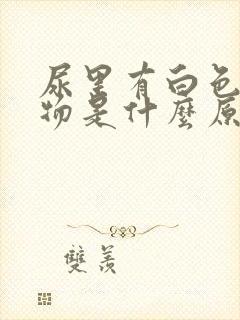 尿里有白色
物是什麼原
雙羨